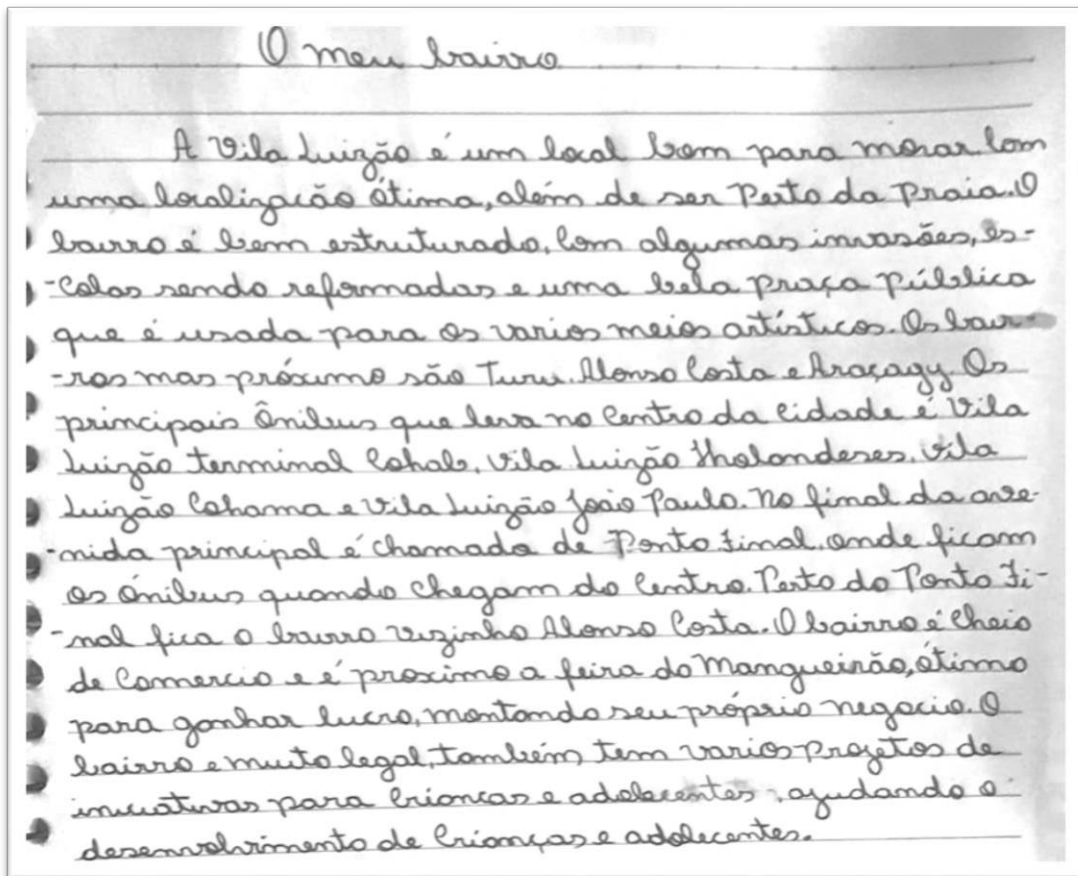 O meu bairro
A Vila Luizão é um local bom para morar. Com
uma localizacão ótima, além de ser Perto da Praia. O
bairro é bem estruturado, Com algumas invasões, es-
-Colas sendo reformadas e uma bela praça pública
que é usada para os varios meios artísticos. Os bair-
-ros mas próximo são Turu. Alonso Costa e Araçagy. Os
principais Ônibus que leva no Centro da Cidade é Vila
Luizão terminal Cohab, Vila Luizão Holandeses, Vila
Luizão Cohama e Vila Luizão João Paulo. No final da ave-
-nida principal é chamada de Ponto Final, onde ficam
os Ônibus quando chegam do Centro. Perto do Ponto Fi-
-nal fica o bairro vizinho Alonso Costa. O bairro é Cheio
de Comercio e é proximo a feira do Mangueirão, ótimo
para ganhar lucro, montando seu próprio negocio. O
bairro e muito legal, também tem varios projetos de
iniciativas para Criancas e adolecentes, ajudando o
desenvolvimento de Crianças e adolecentes.